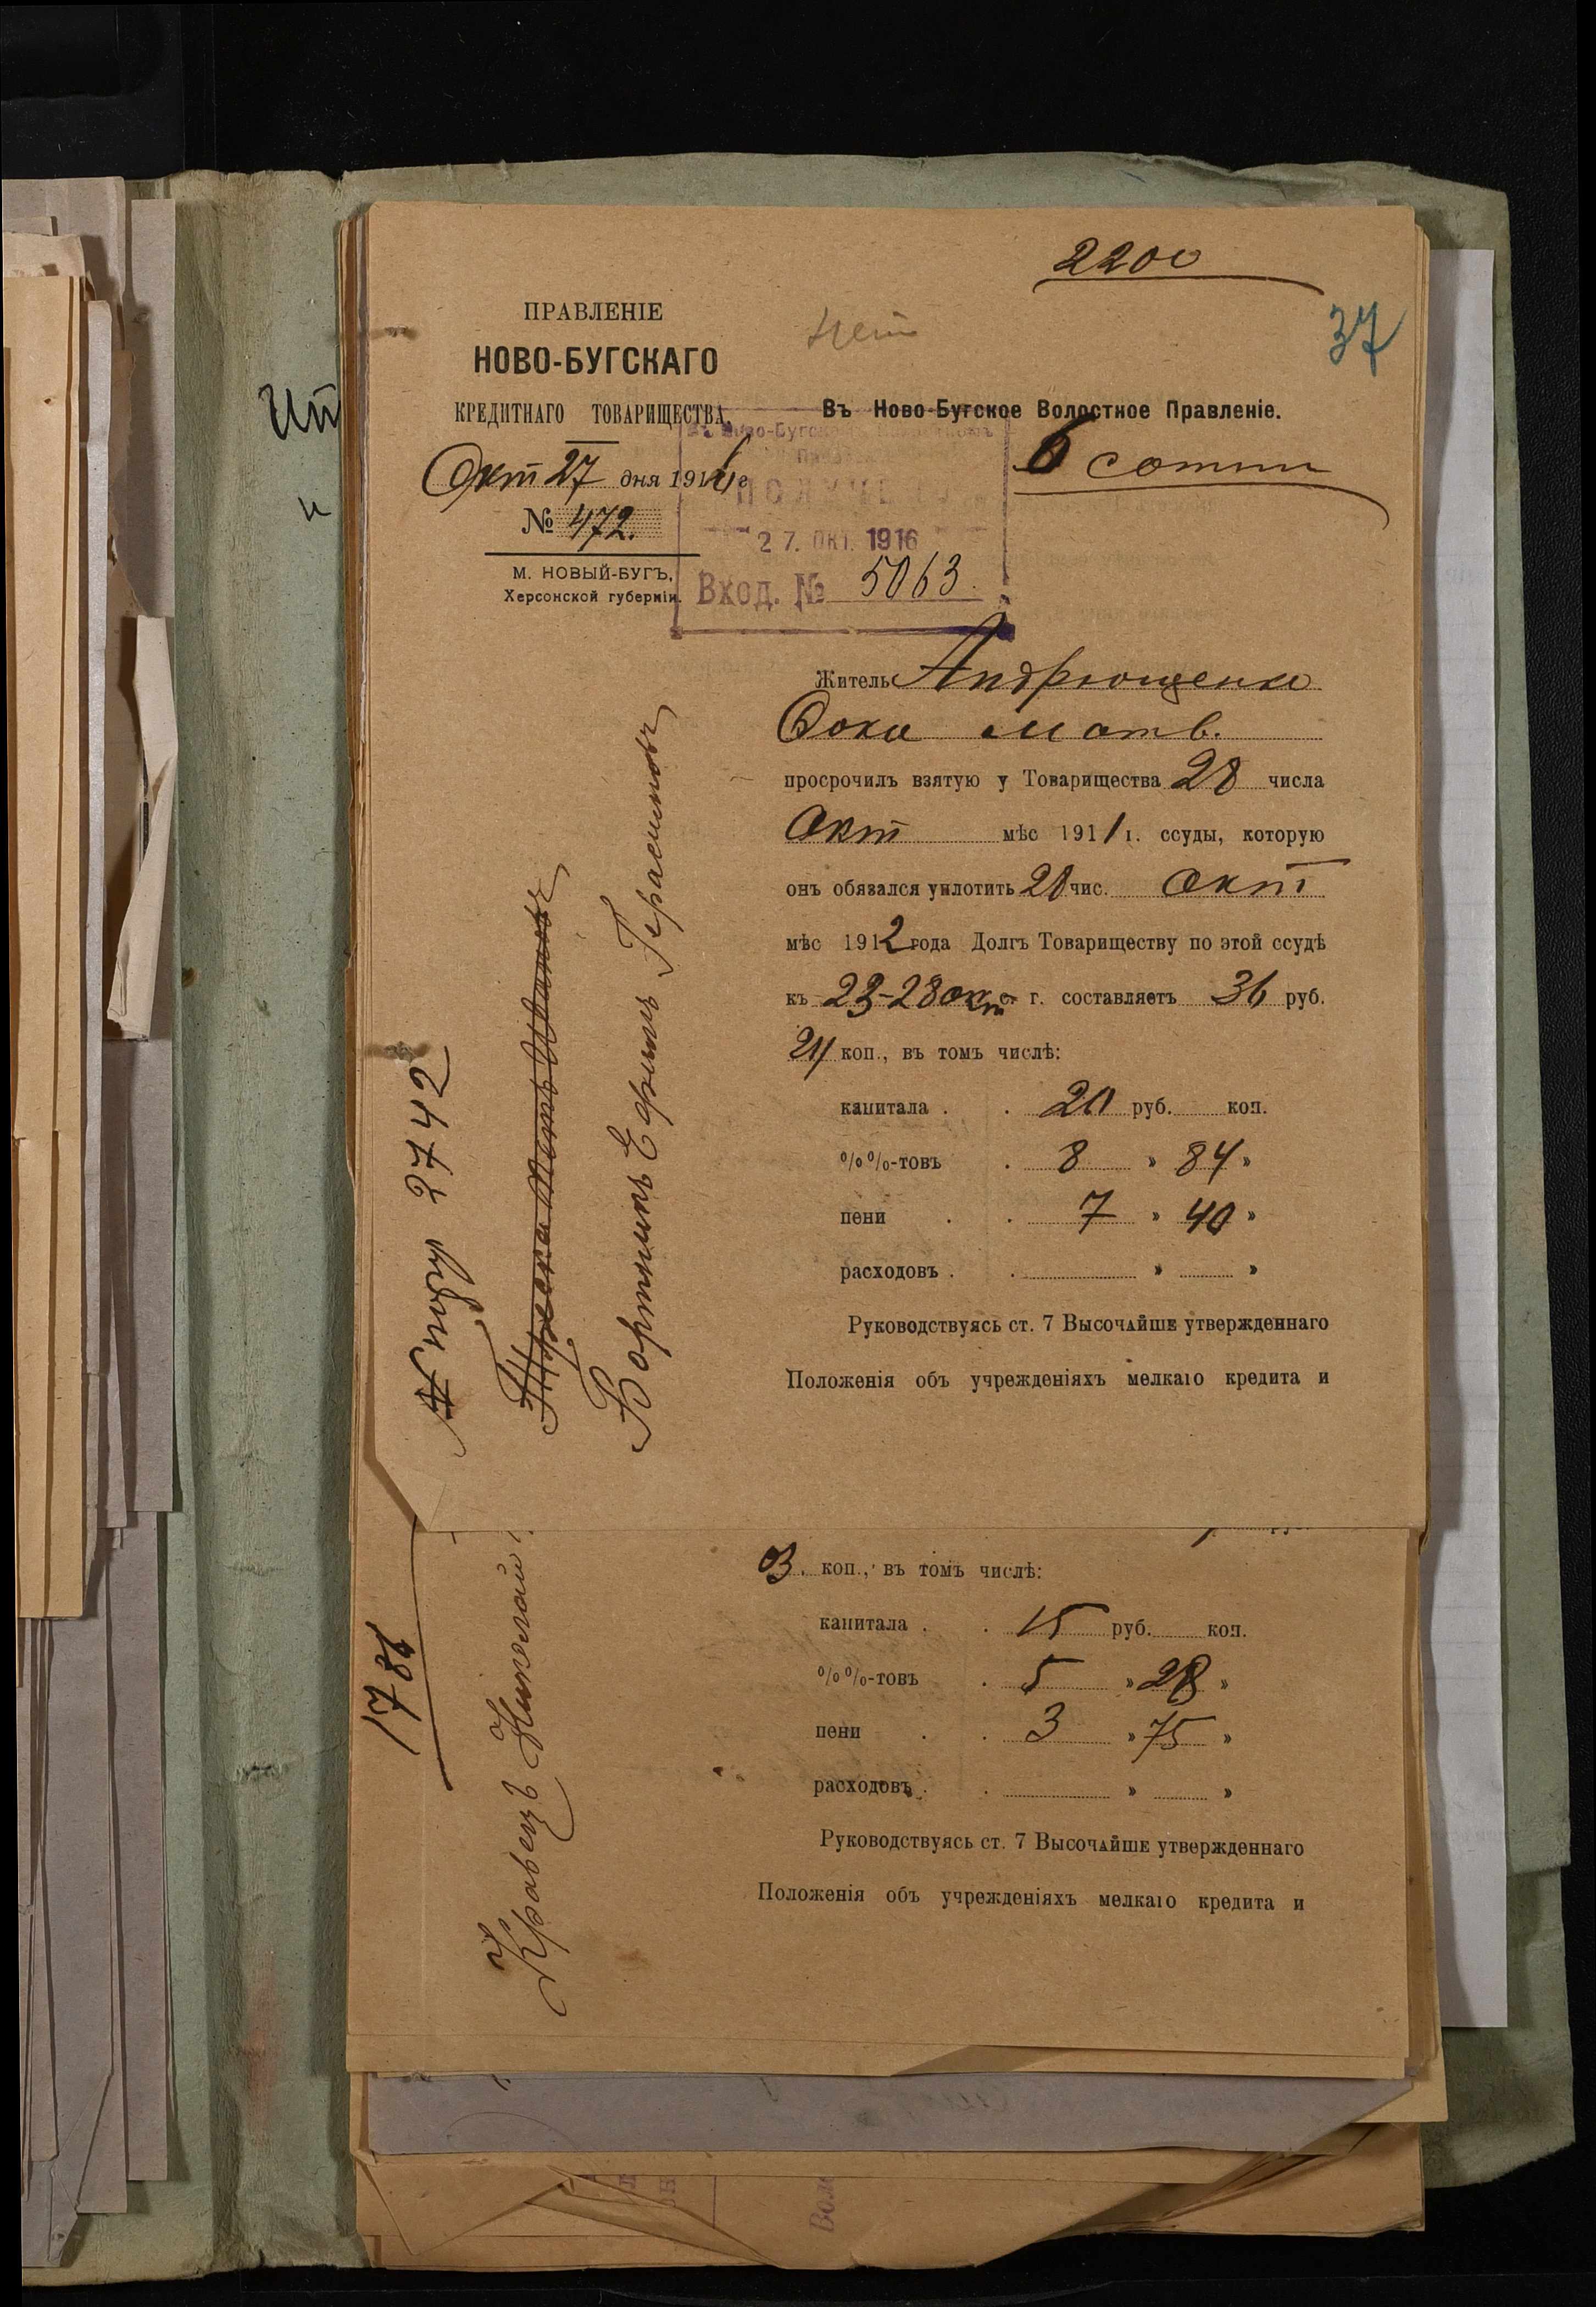 2200
37
ПРАВЛЕНІЕ
НОВО-БУГСКАГО
КРЕДИТНАГО ТОВАРИЩЕСТВА.
Окт 27 дня 1916 г.
№ 472.
М. НОВЫЙ-БУГЪ,
Херсонской губерніи.
Въ Ново-Бугское Волостное Правленіе.
6 сотни
27. ОКТ. 1916
Вход. № 5063.
Житель Андрющенко
Фока Матв.
просрочилъ взятую у Товарищества 28 числа
Окт мѣс 1911 г. ссуды, которую
онъ обязался уплотить 28 чис. Окт
мѣс 1912 года Долгъ Товариществу по этой ссудѣ
къ 23-28 окт с. г. составляетъ 36 руб.
24 коп., въ томъ числѣ:
капитала . . 20 руб. коп.
%%-товъ . 8 » 84 »
пени . . 7 » 40 »
расходовъ . . » »
Руководствуясь ст. 7 Высочайше утвержденнаго
Положенія объ учрежденіяхъ мелкаго кредита и
2742
Бортникъ Ефимъ Герасимовъ
03. коп., въ томъ числѣ:
капитала . . 15 руб. коп.
%%-товъ . 5 » 28 »
пени . . 3 » 75 »
расходовъ . . » »
Руководствуясь ст. 7 Высочайше утвержденнаго
Положенія объ учрежденіяхъ мелкаго кредита и
1786
Кравецъ Николай